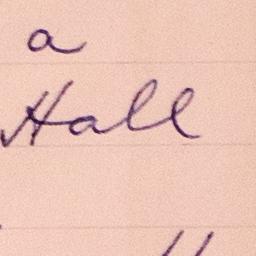 a
Hall